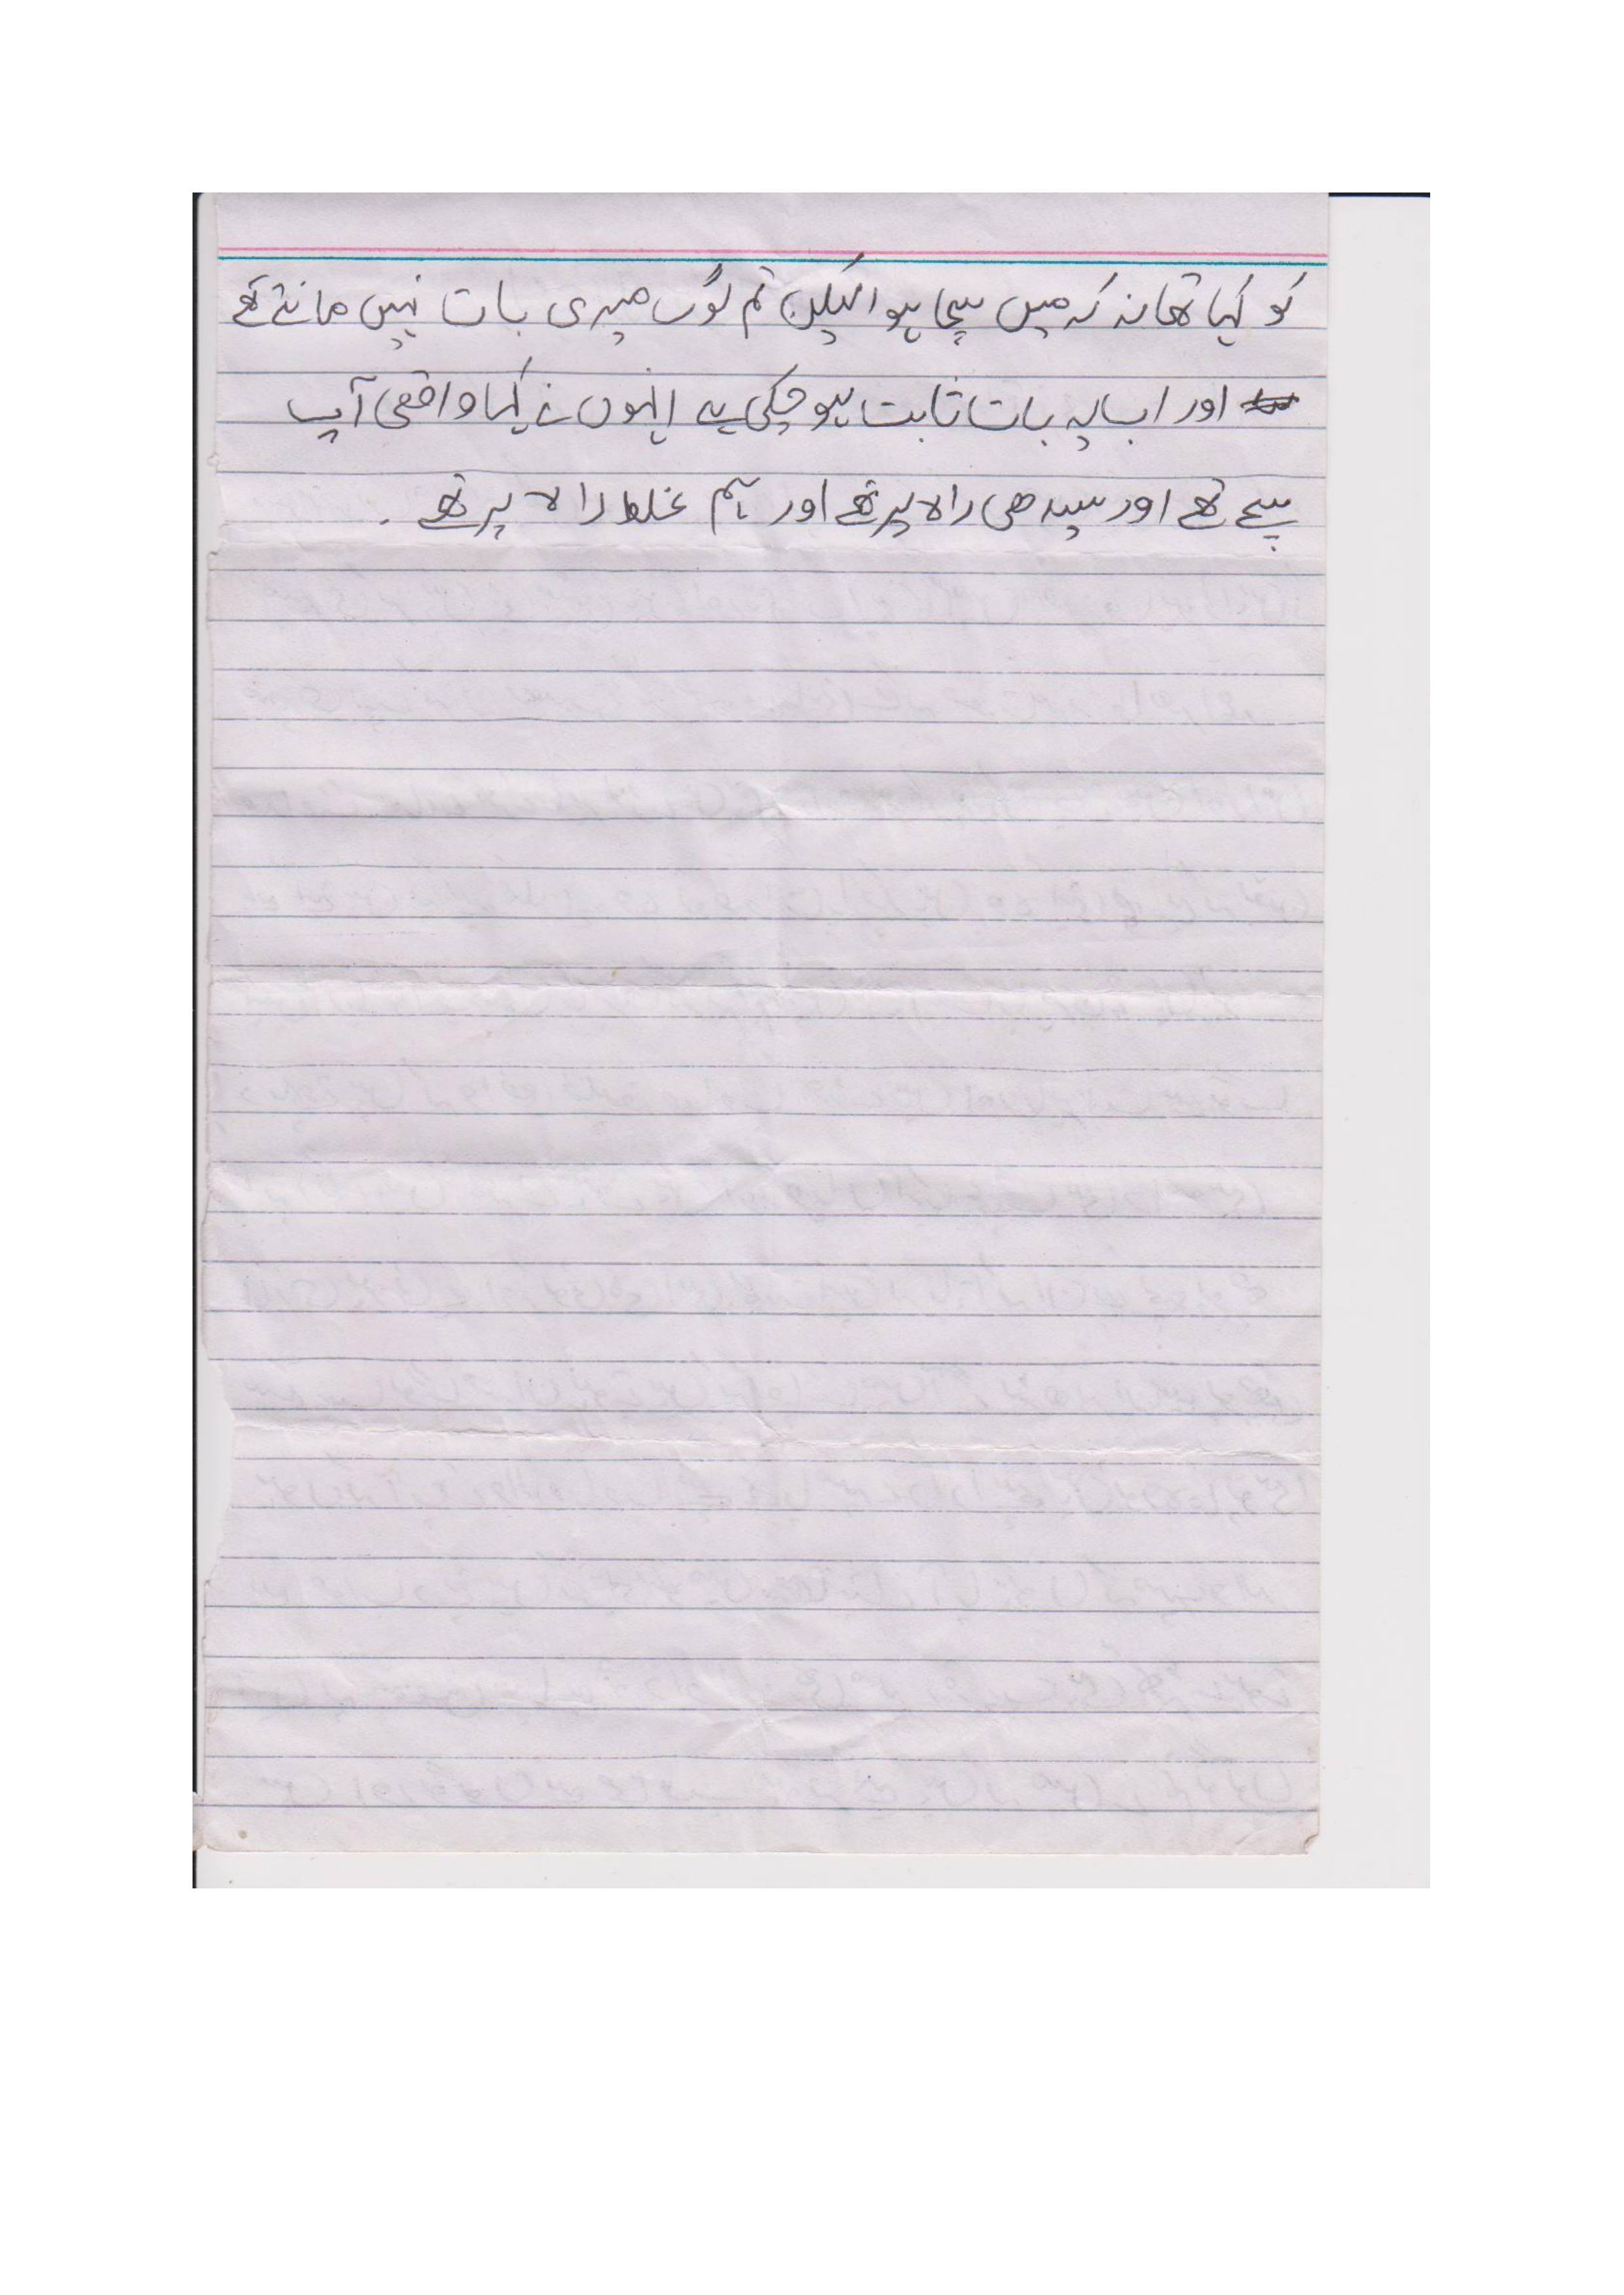 کو کہا تھا نہ کہ میں سچا ہوا لیکن تم لوگ میری بات نہیں مانتے تھے
اور اب یہ بات ثابت ہو چکی ہے انہوں نے کہا واقعی آپ
سچے تھے اور سیدھی راہ پر تھے اور ہم غلط راہ پر تھے .